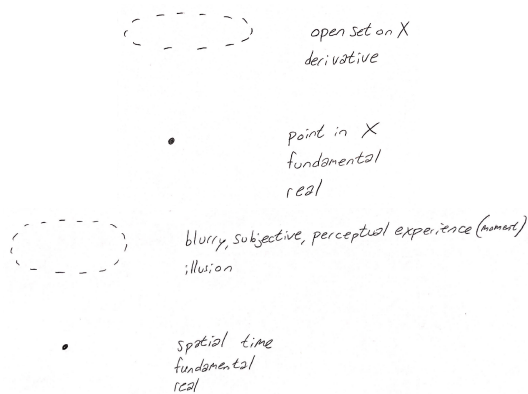 open set on X
derivative
point in X
fundamental
real
blurry, subjective, perceptual experience (moment)
illusion
spatial time
fundamental
real